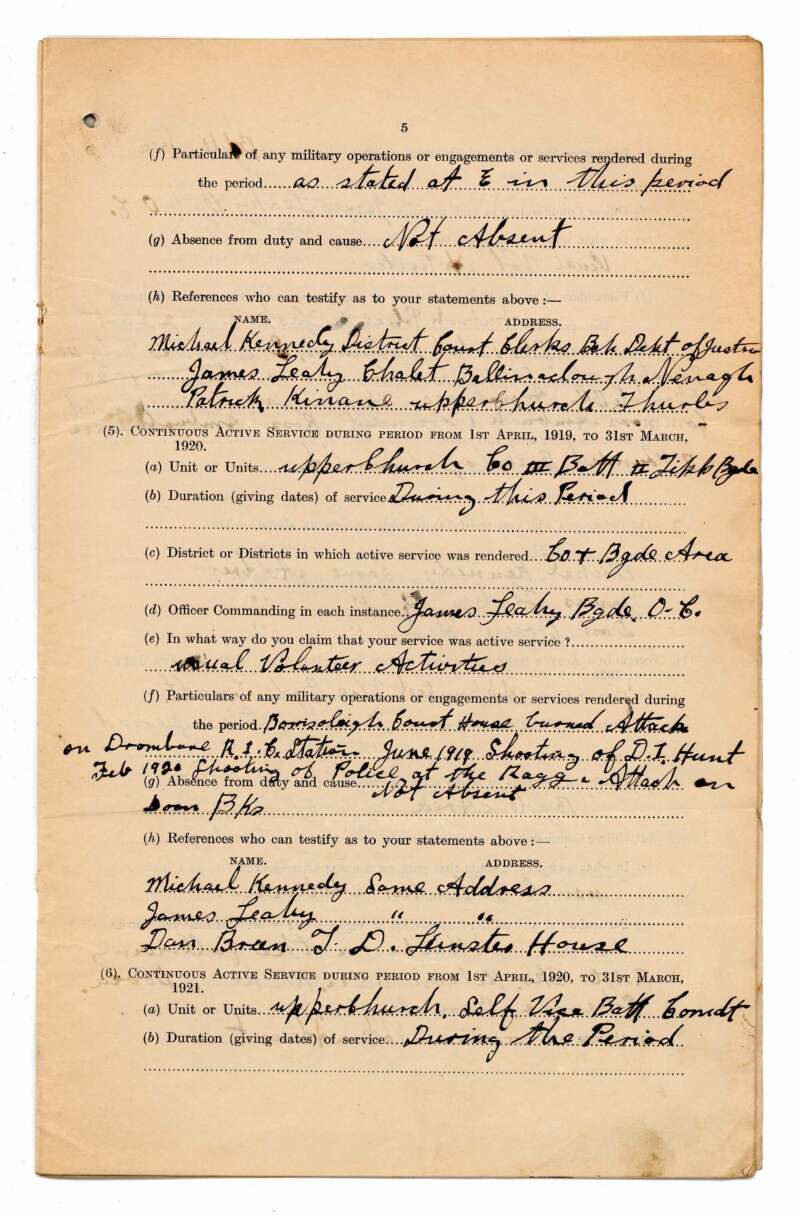 5
(f) Particulars of any military operations or engagements or services rendered during
the period as stated at E in this period
(g) Absence from duty and cause Not Absent
(h) References who can testify as to your statements above :—
NAME. ADDRESS.
Michael Kennedy District Court Clerks Bch Dept of Justice
James Leahy Chalet Ballinaclough Nenagh
Patrick Kinane upperchurch Thurles
(5). CONTINUOUS ACTIVE SERVICE DURING PERIOD FROM 1ST APRIL, 1919, TO 31ST MARCH,
1920.
(a) Unit or Units upperchurch Co III Batt II Tipp Bgde
(b) Duration (giving dates) of service During this Period
(c) District or Districts in which active service was rendered Co + Bgde Area
(d) Officer Commanding in each instance James Leahy Bgde. O-C.
(e) In what way do you claim that your service was active service ?
usual Volunteer Activities
(f) Particulars of any military operations or engagements or services rendered during
the period. Borrisoleigh Court House burned Attack
on Drombane R.I.C. Station June 1919 Shooting of D.I. Hunt
Feb 1920 Shooting of Police at the Ragg. Attack on
(g) Absence from duty and cause Not Absent
Doon Bks
(h) References who can testify as to your statements above :—
NAME. ADDRESS.
Michael Kennedy Same Address
James Leahy " "
Dan Breen T. D. Leinster House
(6). CONTINUOUS ACTIVE SERVICE DURING PERIOD FROM 1ST APRIL, 1920, TO 31ST MARCH,
1921.
(a) Unit or Units upperchurch. Self Vice Batt Comdt
(b) Duration (giving dates) of service During the Period